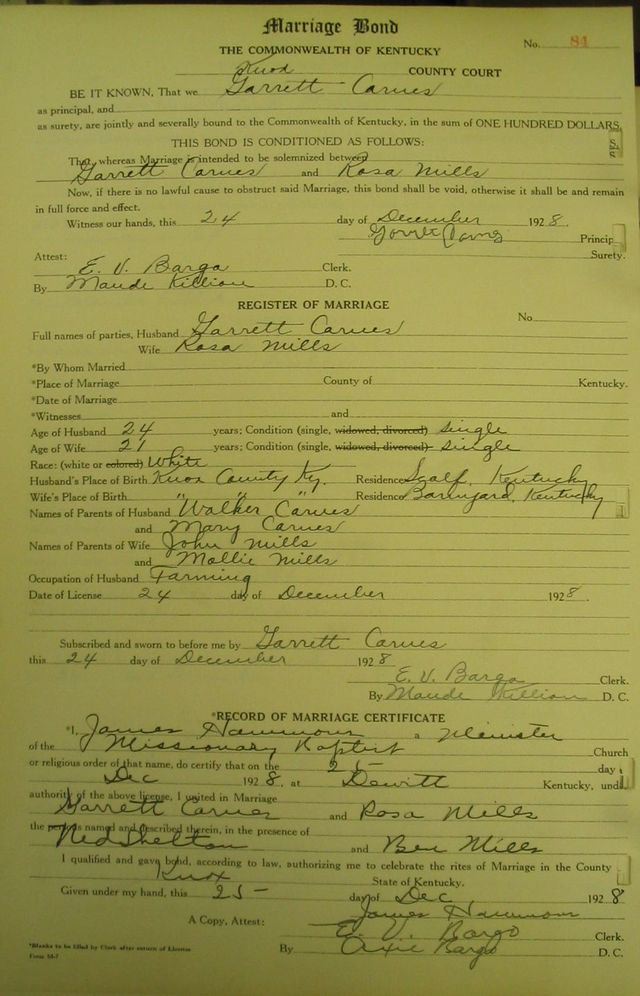 Marriage Bond
No. 84
THE COMMONWEALTH OF KENTUCKY
Knox COUNTY COURT
BE IT KNOWN, That we Garrett Carnes
as principal, and
as surety, are jointly and severally bound to the Commonwealth of Kentucky, in the sum of ONE HUNDRED DOLLARS,
THIS BOND IS CONDITIONED AS FOLLOWS:
That, whereas Marriage is intended to be solemnized between
Garrett Carnes and Rosa Mills
Now, if there is no lawful cause to obstruct said Marriage, this bond shall be void, otherwise it shall be and remain
in full force and effect.
Witness our hands, this 24 day of December 1928.
Garrett Carnes Princip
Surety.
Attest:
E. V. Bargo Clerk.
By Maude Killion D. C.
REGISTER OF MARRIAGE
No.
Full names of parties, Husband Garrett Carnes
Wife Rosa Mills
*By Whom Married
*Place of Marriage County of Kentucky.
*Date of Marriage
*Witnesses and
Age of Husband 24 years; Condition (single, widowed, divorced) Single
Age of Wife 21 years; Condition (single, widowed, divorced) Single
Race: (white or colored) White
Husband's Place of Birth Knox County Ky. Residence Scalf, Kentucky
Wife's Place of Birth " " " Residence Barnyard, Kentucky
Names of Parents of Husband Walker Carnes
and Mary Carnes
Names of Parents of Wife John Mills
and Mollie Mills
Occupation of Husband Farming
Date of License 24 day of December 1928.
Subscribed and sworn to before me by Garrett Carnes
this 24 day of December 1928
E. V. Bargo Clerk.
By Maude Killion D. C.
*RECORD OF MARRIAGE CERTIFICATE
*I, James Hammons a Minister
of the Missionary Baptist Church
or religious order of that name, do certify that on the 25 day
Dec 1928, at Dewitt Kentucky, und
authority of the above license, I united in Marriage
Garrett Carnes and Rosa Mills
the persons named and described therein, in the presence of
Ned Shelton and Ben Mills
I qualified and gave bond, according to law, authorizing me to celebrate the rites of Marriage in the County
Knox State of Kentucky.
Given under my hand, this 25 day of Dec 1928
James Hammons
A Copy, Attest: E. V. Bargo Clerk.
By Bargo D. C.
*Blanks to be filled by Clerk after return of License